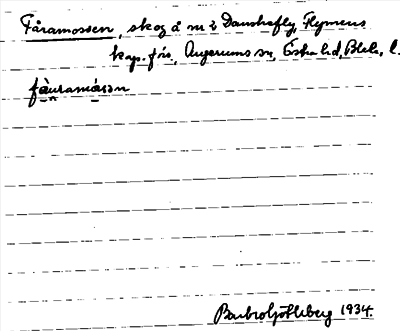 Fåramossen, skog å nr 2 Danskefly, Flymens
kap. förs., Augerums sn, Östra hd, Blek. l.
fåuramåsən
Barbro Götleberg 1934.